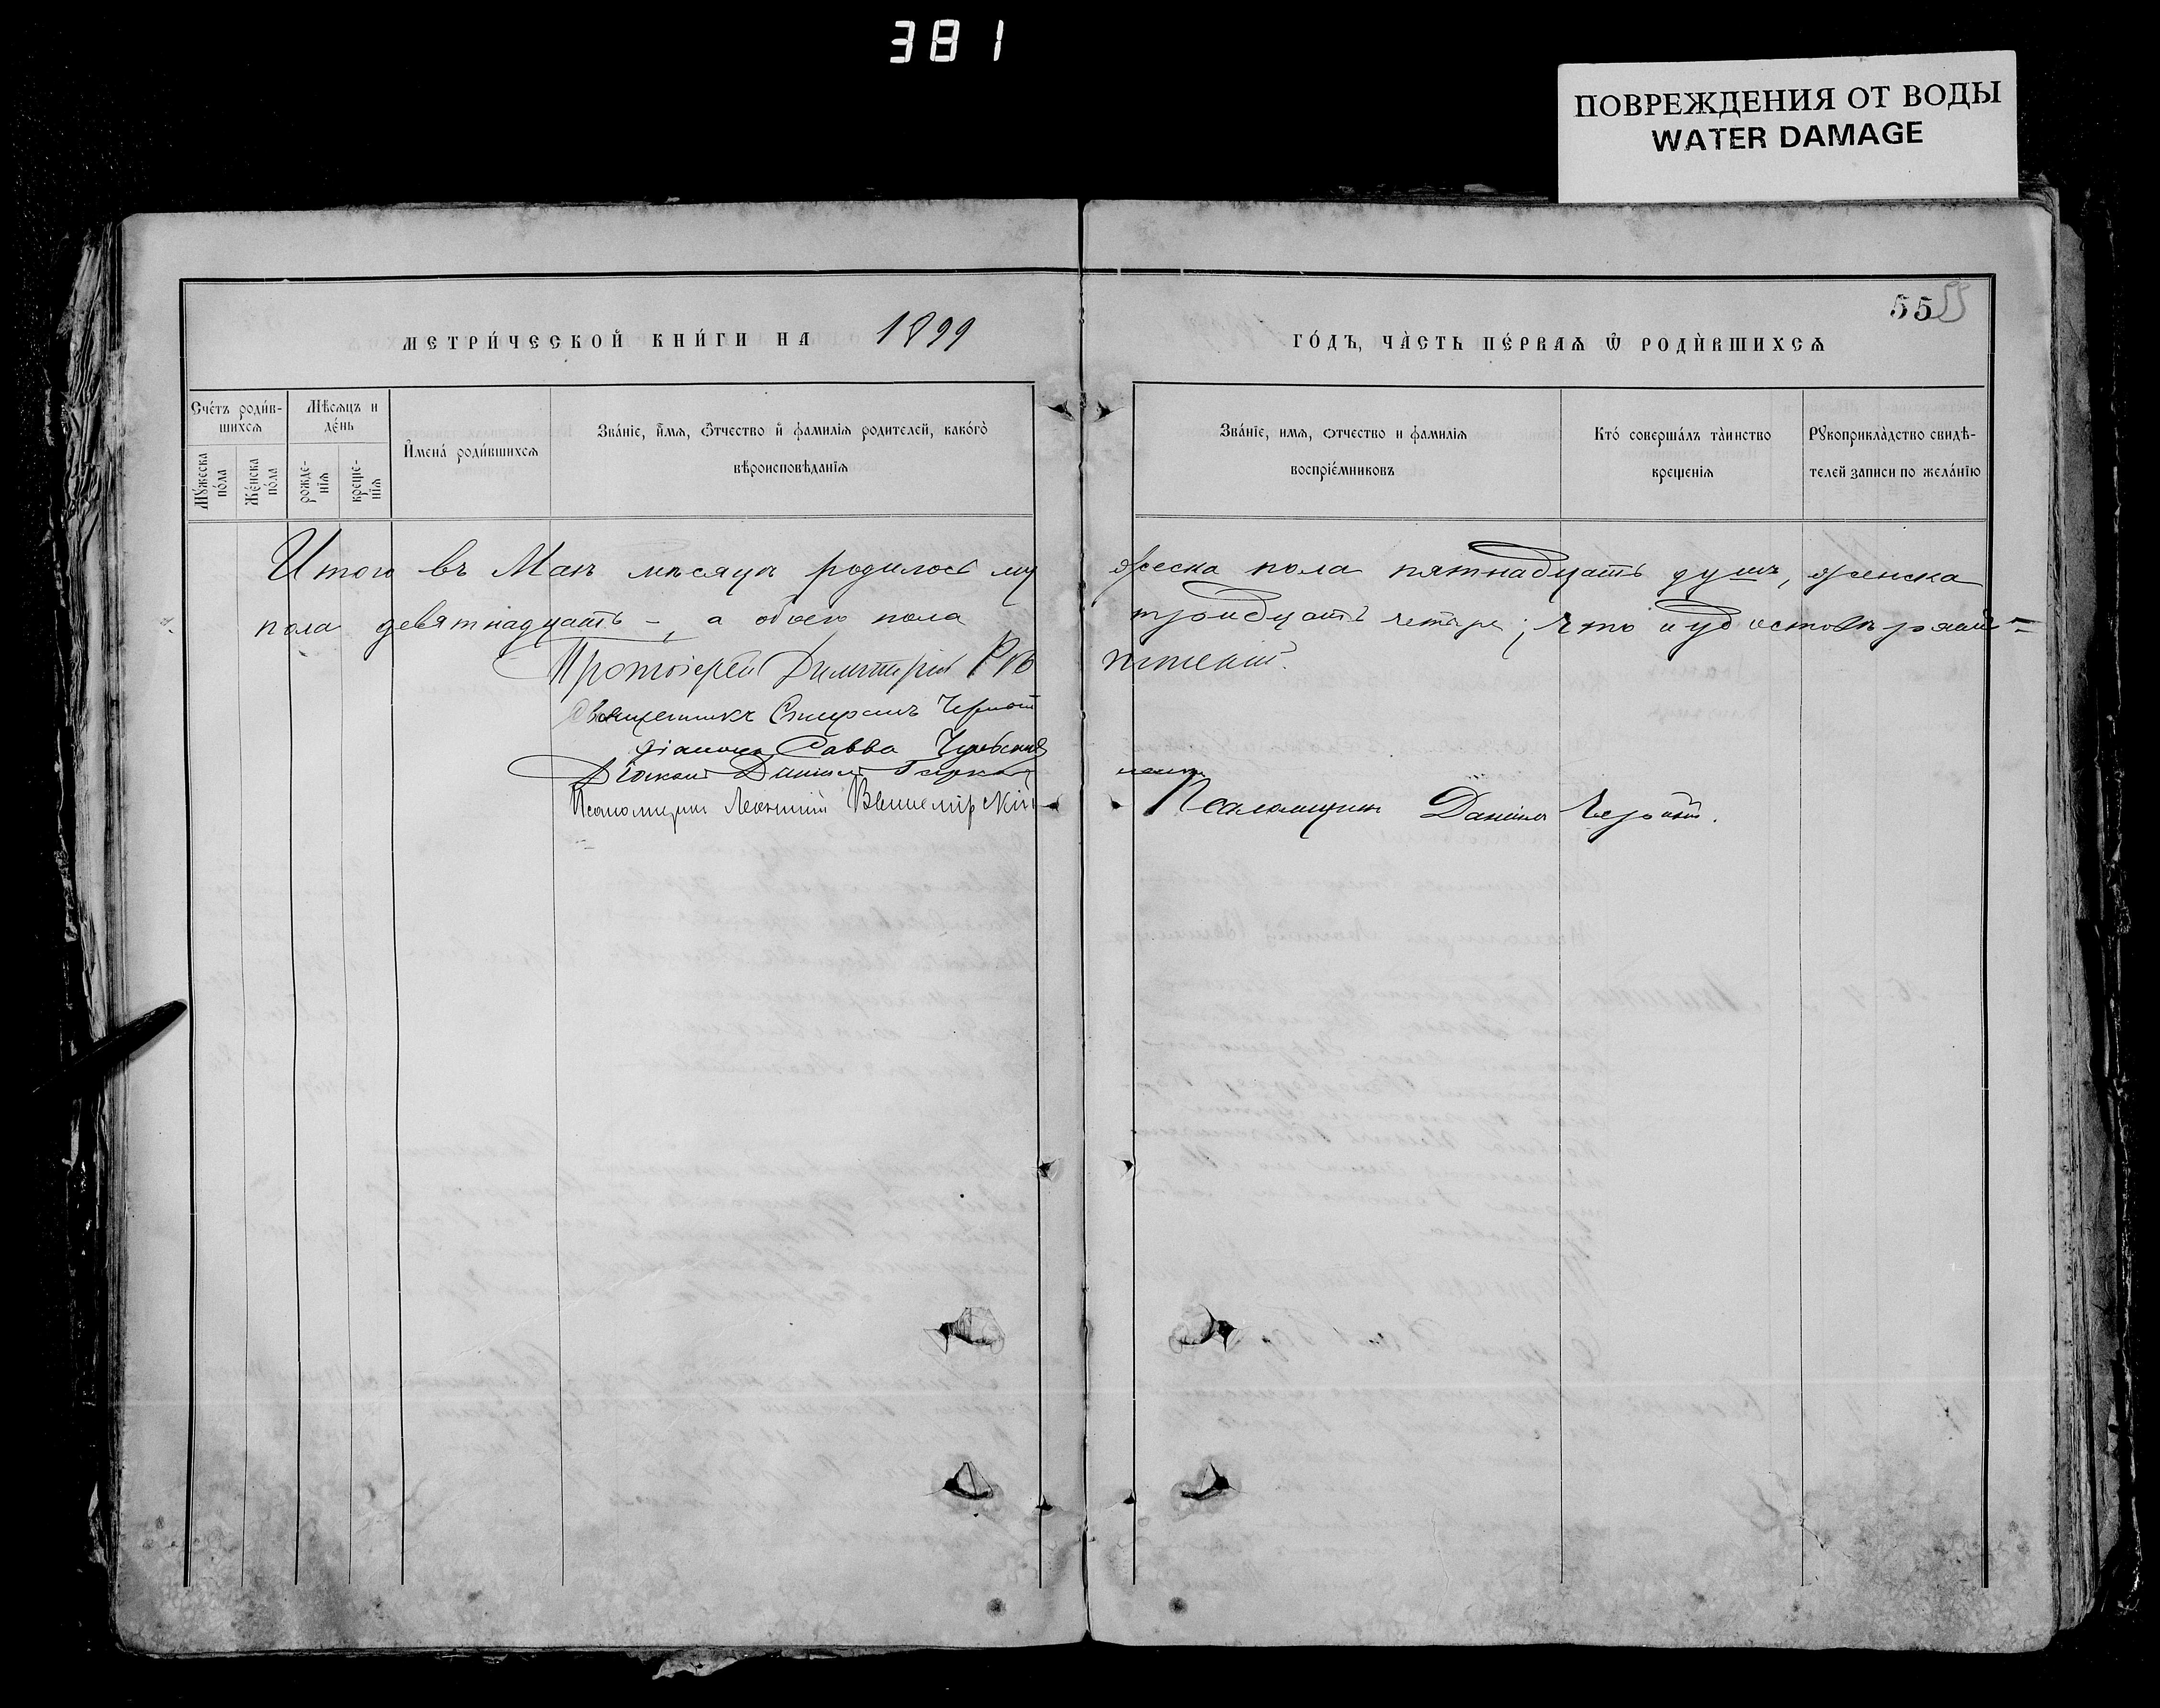 381
ПОВРЕЖДЕНИЯ ОТ ВОДЫ
WATER DAMAGE
55 55
МЕТРИ́ЧЕСКОЙ КНИ́ГИ НА 1899 ГО́ДЪ, ЧА̀СТЬ ПЕ́РВАѦ Ѿ РОДИ́ВШИХСѦ
Сче́тъ роди́в-
шихсѧ
Мѣ́сѧцъ и
де́нь
Мꙋ́жеска
по́ла
Же́нска
по́ла
рожде-
нїѧ
креще-
нїѧ
И҆мена́ роди́вшихсѧ
Зва́нїе, и҆́мѧ, ѻ҆́тчество и҆ фамилїѧ родителей, како́гѡ
вѣроисповѣ́данїѧ
Зва́нїе, имѧ, ѻтчество и фамилїѧ
воспрїе́мниковъ
Кто́ соверша́лъ та́инство
креще́нїѧ
Рꙋкоприкла́дство свидѣ-
телей записи по жела́нїю
Итого въ Маѣ мѣсяцѣ родилось му жеска пола пятнадцать душъ, женска
пола девятнадцать –, а обоего пола тридцать четыре; что и удостовѣряемъ =
Протоіерей Димитрій
Священникъ Спиридонъ
Діаконъ Савва
Діаконъ Даніилъ
Псаломщикъ Леонтій
Псаломщикъ Даніилъ